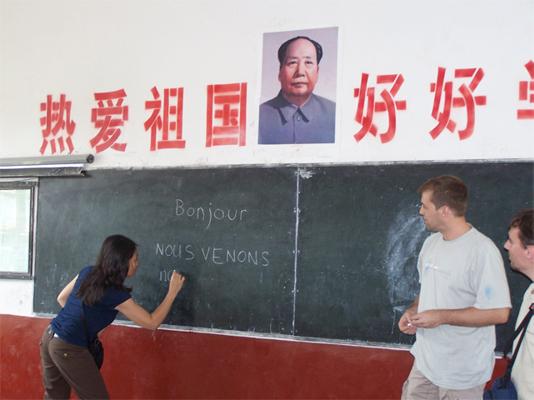 热爱祖国 好好学
Bonjour
NOUS VENONS